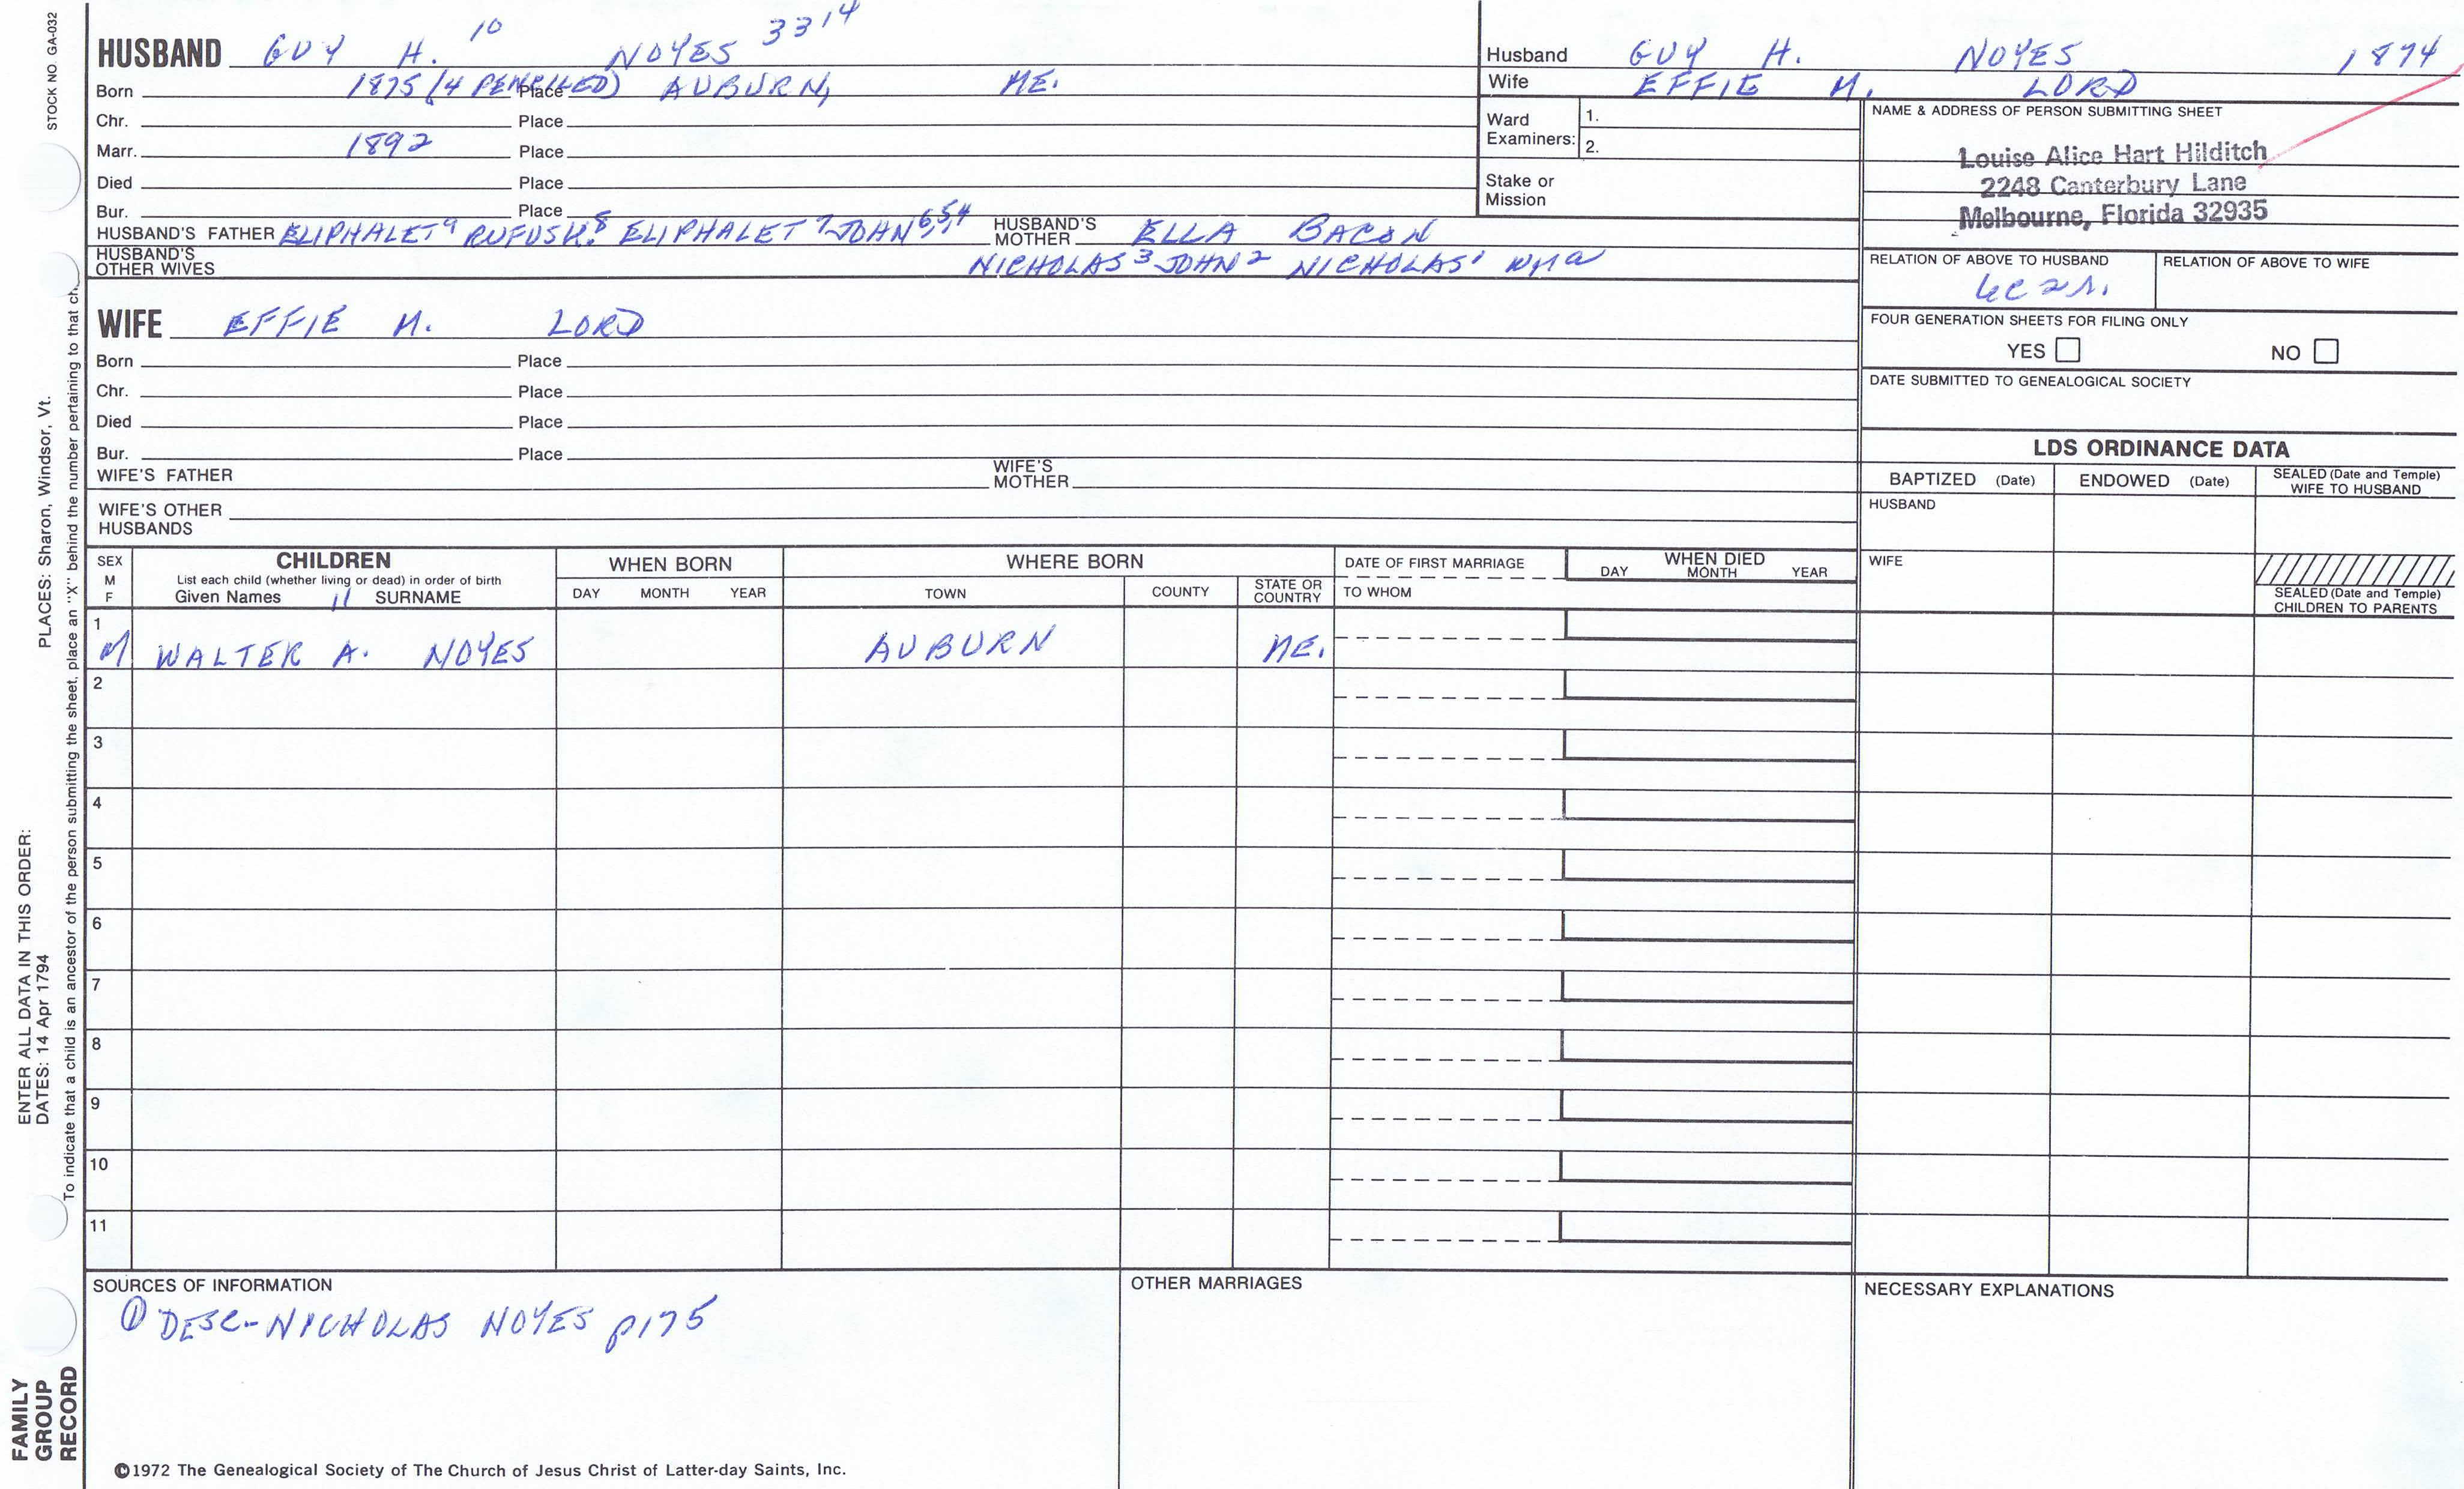 STOCK NO. GA-032
HUSBAND GUY H. 10 NOYES 3314
Born 1875 (4 PENCILLED) Place AUBURN, ME.
Chr. Place
Marr. 1892 Place
Died Place
Bur. Place
HUSBAND'S FATHER ELIPHALET 9 RUFUS K. 8 ELIPHALET 7 JOHN 6,5,4 HUSBAND'S MOTHER ELLA BACON
HUSBAND'S OTHER WIVES NICHOLAS 3 JOHN 2 NICHOLAS 1 WM a
WIFE EFFIE M. LORD
Born Place
Chr. Place
Died Place
Bur. Place
WIFE'S FATHER WIFE'S MOTHER
WIFE'S OTHER HUSBANDS
Husband GUY H. NOYES 1874
Wife EFFIE M. LORD
Ward Examiners: 1.
2.
Stake or Mission
NAME & ADDRESS OF PERSON SUBMITTING SHEET
Louise Alice Hart Hilditch
2248 Canterbury Lane
Melbourne, Florida 32935
RELATION OF ABOVE TO HUSBAND RELATION OF ABOVE TO WIFE
FOUR GENERATION SHEETS FOR FILING ONLY
YES NO
DATE SUBMITTED TO GENEALOGICAL SOCIETY
LDS ORDINANCE DATA
BAPTIZED (Date) ENDOWED (Date) SEALED (Date and Temple) WIFE TO HUSBAND
HUSBAND
WIFE
SEALED (Date and Temple) CHILDREN TO PARENTS
SEX M F
CHILDREN
List each child (whether living or dead) in order of birth
Given Names 11 SURNAME
WHEN BORN
DAY MONTH YEAR
WHERE BORN
TOWN COUNTY STATE OR COUNTRY
DATE OF FIRST MARRIAGE
TO WHOM
WHEN DIED
DAY MONTH YEAR
1
M WALTER A. NOYES AUBURN ME.
2
3
4
5
6
7
8
9
10
11
SOURCES OF INFORMATION
① DESC-NICHOLAS NOYES p175
OTHER MARRIAGES
NECESSARY EXPLANATIONS
©1972 The Genealogical Society of The Church of Jesus Christ of Latter-day Saints, Inc.
FAMILY
GROUP
RECORD
ENTER ALL DATA IN THIS ORDER:
DATES: 14 Apr 1794 PLACES: Sharon, Windsor, Vt.
To indicate that a child is an ancestor of the person submitting the sheet, place an "X" behind the number pertaining to that ch